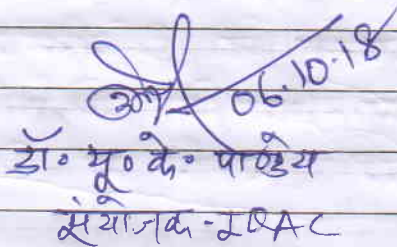 06.10.18
डॉ॰ यू॰ के॰ पाण्डेय
संयोजक - IQAC